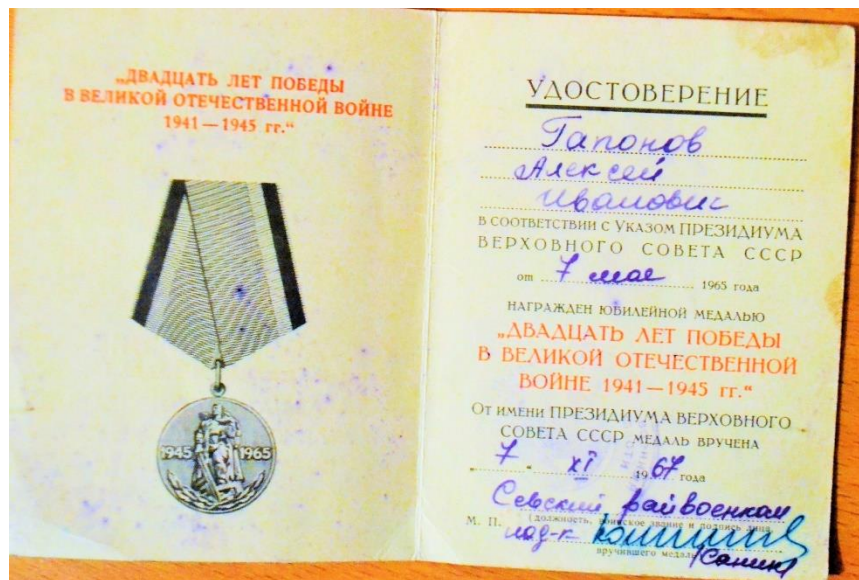 „ДВАДЦАТЬ ЛЕТ ПОБЕДЫ
В ВЕЛИКОЙ ОТЕЧЕСТВЕННОЙ ВОЙНЕ
1941—1945 гг.“
1945 1965
УДОСТОВЕРЕНИЕ
Гапонов
Алексей
Иванович
В СООТВЕТСТВИИ С УКАЗОМ ПРЕЗИДИУМА
ВЕРХОВНОГО СОВЕТА СССР
от 7 мая 1965 года
НАГРАЖДЕН ЮБИЛЕЙНОЙ МЕДАЛЬЮ
„ДВАДЦАТЬ ЛЕТ ПОБЕДЫ
В ВЕЛИКОЙ ОТЕЧЕСТВЕННОЙ
ВОЙНЕ 1941—1945 гг.“
ОТ ИМЕНИ ПРЕЗИДИУМА ВЕРХОВНОГО
СОВЕТА СССР МЕДАЛЬ ВРУЧЕНА
„7“ XI 1967 года
Севский райвоенком
М. П. (должность, воинское звание и подпись лица,
под-к
вручившего медаль)